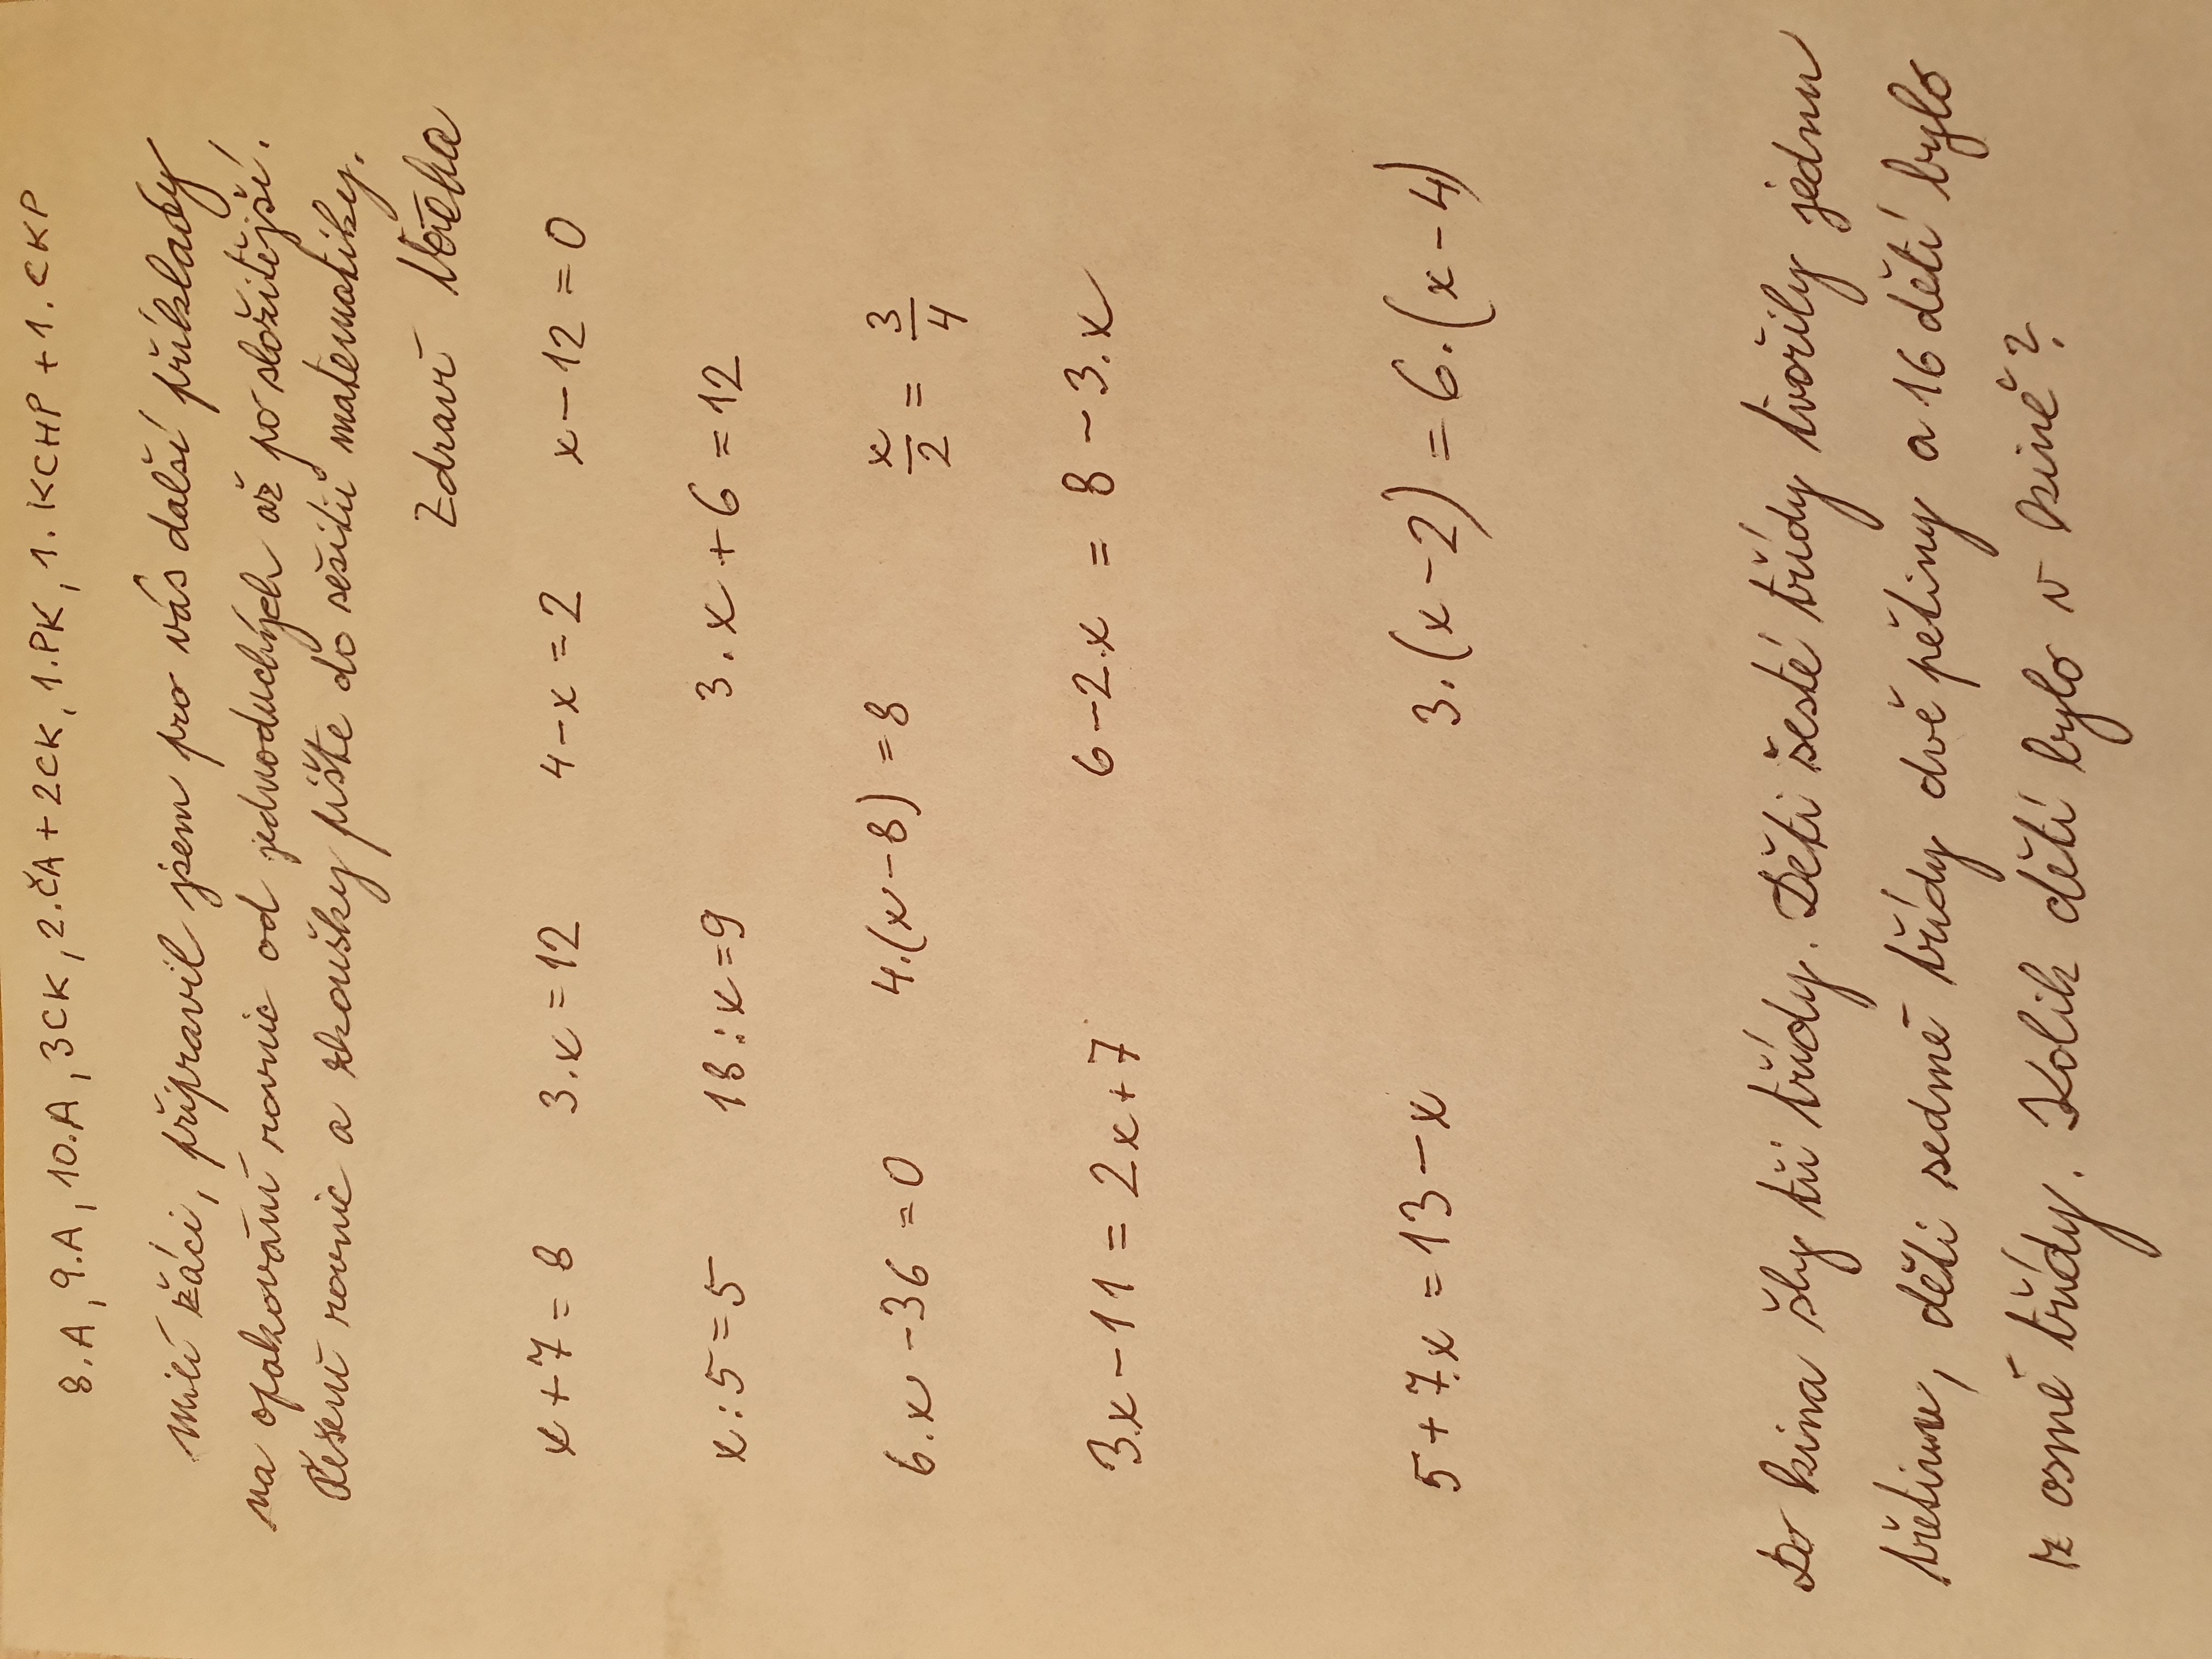 8.A, 9.A, 10.A, 3CK, 2.ČA + 2CK, 1.PK, 1.KCHP + 1.CKP
Milí žáci, připravil jsem pro vás další příklady
na opakování rovnic od jednoduchých až po složitější.
Řešení rovnic a zkoušky pište do sešitů matematiky.
Zdraví
x + 7 = 8 3.x = 12 4 - x = 2 x - 12 = 0
x : 5 = 5 18 : x = 9 3.x + 6 = 12
6.x - 36 = 0 4.(x - 8) = 8 x/2 = 3/4
3.x - 11 = 2x + 7 6 - 2.x = 8 - 3.x
5 + 7.x = 13 - x 3.(x - 2) = 6.(x - 4)
Do kina šly tři třídy. Děti šesté třídy tvořily jednu
třetinu, děti sedmé třídy dvě pětiny a 16 dětí bylo
z osmé třídy. Kolik dětí bylo v kině?